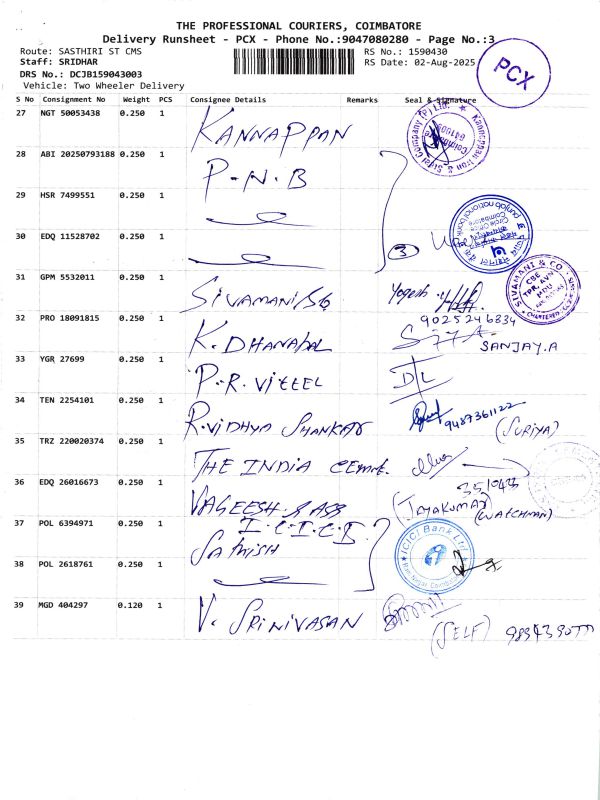 THE PROFESSIONAL COURIERS, COIMBATORE
Delivery Runsheet - PCX - Phone No.:9047080280 - Page No.:3
Route: SASTHIRI ST CMS RS No.: 1590430
Staff: SRIDHAR RS Date: 02-Aug-2025
DRS No.: DCJB159043003
Vehicle: Two Wheeler Delivery
PCX
S No Consignment No Weight PCS Consignee Details Remarks Seal & Signature
27 NGT 50053438 0.250 1 KANNAPPAN
28 ABI 20250793188 0.250 1 P-N.B
29 HSR 7499551 0.250 1
30 EDQ 11528702 0.250 1 3
31 GPM 5532011 0.250 1 SIVAMANI Yogesh
SIVAMANI & CO
9025246334
32 PRO 18091815 0.250 1 K. DHANAPAL SANJAY.A
33 YGR 27699 0.250 1 P.R. Vittel
34 TEN 2254101 0.250 1 R.VIDHYA SHANKAR 9487361122
(SURIYA)
35 TRZ 220020374 0.250 1 THE INDIA Cement
36 EDQ 26016673 0.250 1 VAGEESH
(JAYAKUMAR) (WATCHMAN)
37 POL 6394971 0.250 1 I.C.I.C.I.
SATHISH
ICICI Bank Ltd
38 POL 2618761 0.250 1
39 MGD 404297 0.120 1 V. SRINIVASAN
(SELF)